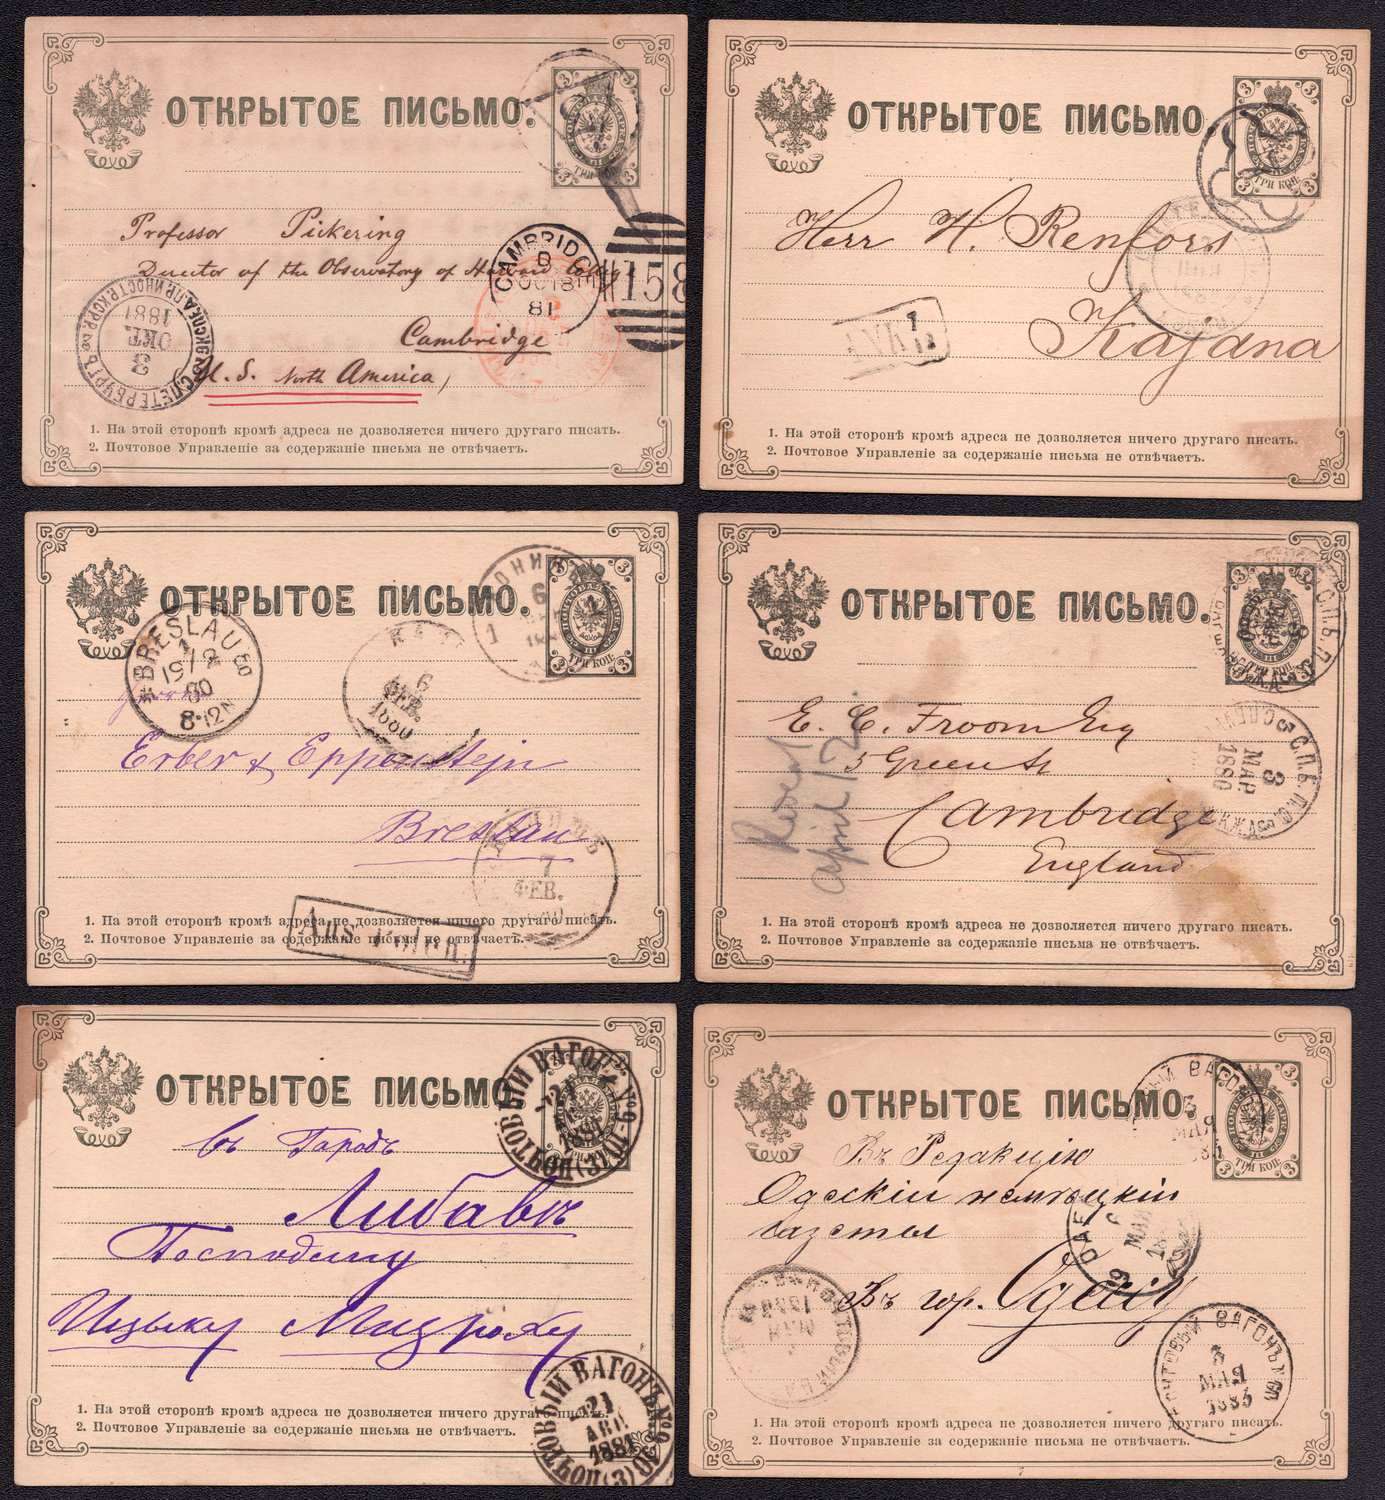 ОТКРЫТОЕ ПИСЬМО.
3 3
ТРИ КОП.
3 3
Professor Pickering
Director of the Observatory of Harvard College
Cambridge
(U. S. North America)
CAMBRIDGE
OC 18
81
158
С.ПЕТЕРБУРГЪ
3
ОКТ.
1881
1. На этой сторонѣ кромѣ адреса не дозволяется ничего другаго писать.
2. Почтовое Управленіе за содержаніе письма не отвѣчаетъ.
ОТКРЫТОЕ ПИСЬМО
3 3
ТРИ КОП.
3 3
Herr H. Renfors
Kajana
1. На этой сторонѣ кромѣ адреса не дозволяется ничего другаго писать.
2. Почтовое Управленіе за содержаніе письма не отвѣчаетъ.
ОТКРЫТОЕ ПИСЬМО.
3 3
ТРИ КОП.
3 3
BRESLAU
19/2
80
8-12N
6
ФЕВ.
1880
Erber & Eppenstejn
Breslau
7
ФЕВ.
Aus Polen.
1. На этой сторонѣ кромѣ адреса не дозволяется ничего другаго писать.
2. Почтовое Управленіе за содержаніе письма не отвѣчаетъ.
ОТКРЫТОЕ ПИСЬМО.
3 3
ТРИ КОП.
3 3
E. C. Froom Esq
5 Green St
Cambridge
England
April 12
3
МАР.
1880
1. На этой сторонѣ кромѣ адреса не дозволяется ничего другаго писать.
2. Почтовое Управленіе за содержаніе письма не отвѣчаетъ.
ОТКРЫТОЕ ПИСЬМО
ПОЧТОВЫЙ ВАГОНЪ №9-Й
21
1881
въ Городъ
Либавъ
Господину
Ицыку Мизроху
ПОЧТОВЫЙ ВАГОНЪ №9
21
АПР.
1881
1. На этой сторонѣ кромѣ адреса не дозволяется ничего другаго писать.
2. Почтовое Управленіе за содержаніе письма не отвѣчаетъ.
ОТКРЫТОЕ ПИСЬМО.
3
МАЯ
3 3
ТРИ КОП.
3 3
Въ Редакцію
Одесскій немѣцкій
газеты
Въ гор. Одессу
ПОЧТОВЫЙ ВАГОНЪ
3
МАЯ
1883
1. На этой сторонѣ кромѣ адреса не дозволяется ничего другаго писать.
2. Почтовое Управленіе за содержаніе письма не отвѣчаетъ.